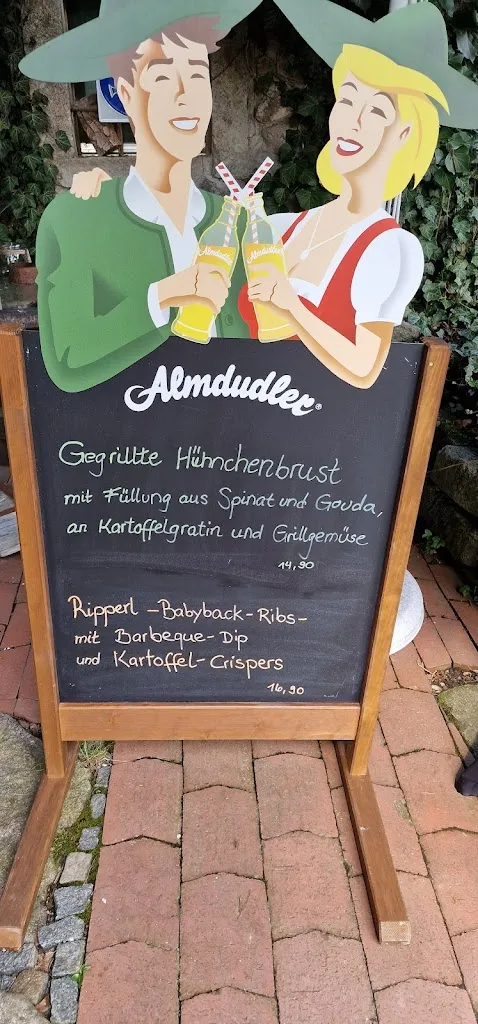 Almdudler Almdudler
Almdudler®
Gegrillte Hühnchenbrust
mit Füllung aus Spinat und Gouda,
an Kartoffelgratin und Grillgemüse
14,90
Ripperl -Babyback-Ribs-
mit Barbeque-Dip
und Kartoffel-Crispers
16,90